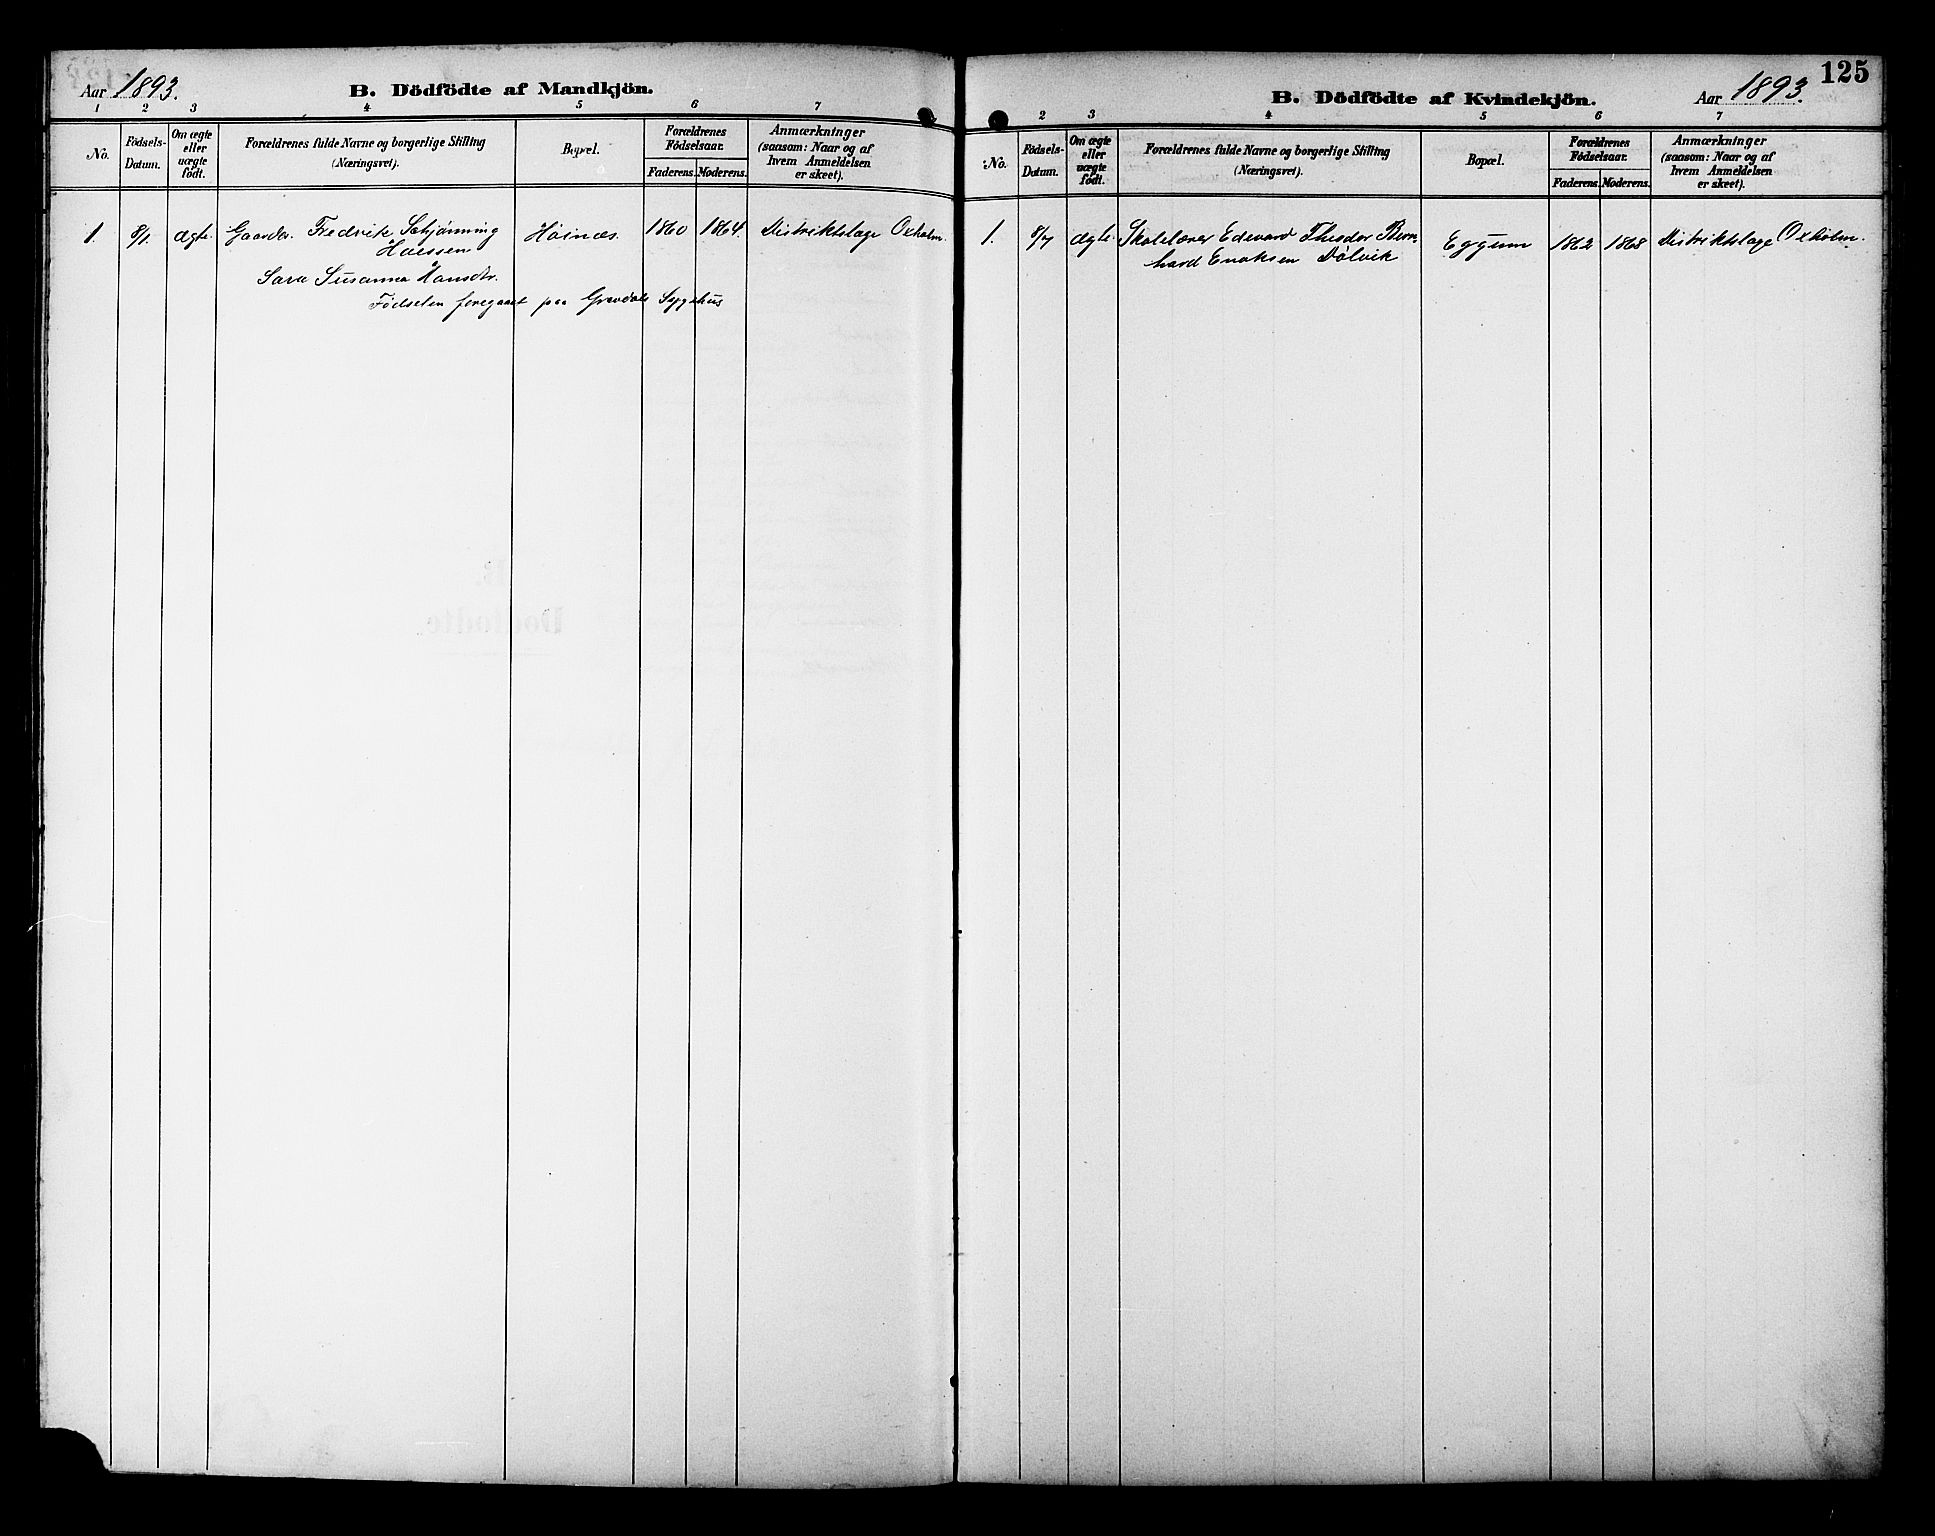 Aar 1893.
B. Dödfödte af Mandkjön.
1 2 3 4 5 6 7
No.
Födsels-
Datum.
Om ægte
eller
uægte
födt.
Forældrenes fulde Navne og borgerlige Stilling
(Næringsvei).
Bopæl.
Forældrenes
Födselsaar.
Faderens. Moderens.
Anmærkninger
(saasom: Naar og af
hvem Anmeldelsen
er skeet).
1. 8/1. ægte. Gaardbr. Fredrik Schjønning Høines. 1860 1864. Distriktslæge Oxholm.
Sara Susanna Hansdtr.
Fødselen foregaaet paa Gravdals Sygehus
125
B. Dödfödte af Kvindekjön.
Aar 1893.
2 3 4 5 6 7
No.
Födsels-
Datum.
Om ægte
eller
uægte
födt.
Forældrenes fulde Navne og borgerlige Stilling
(Næringsvei).
Bopæl.
Forældrenes
Födselsaar.
Faderens. Moderens.
Anmærkninger
(saasom: Naar og af
hvem Anmeldelsen
er skeet).
1. 8/7 ægte. Skolelærer Edevard Theodor Bern- Eggum 1862 1868 Distriktslæge Oxholm.
hard Enoksen Dølvik